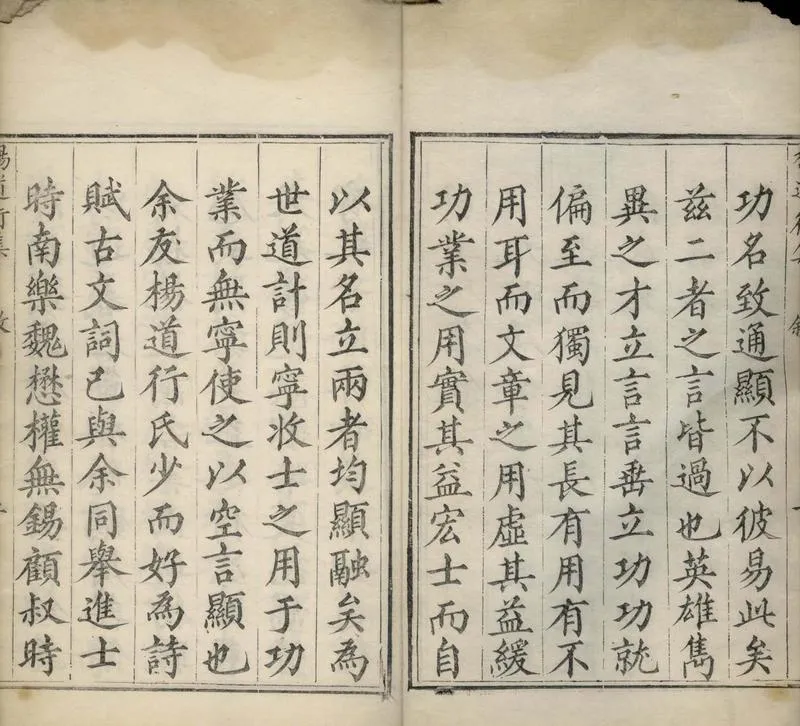 功名致通顯不以彼易此矣
茲二者之言皆過也英雄雋
異之才立言言垂立功功就
偏至而獨見其長有用有不
用耳而文章之用虛其益緩
功業之用實其益宏士而自
以其名立兩者均顯融矣為
世道計則寧收士之用于功
業而無寧使之以空言顯也
余友楊道行氏少而好為詩
賦古文詞已與余同舉進士
時南樂魏懋權無錫顧叔時
楊道行集